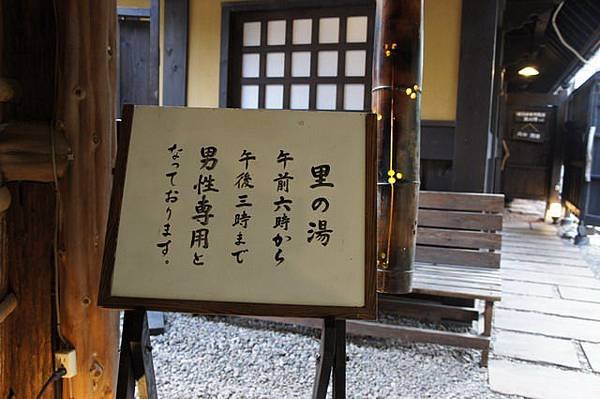 里の湯
午前六時から
午後三時まで
男性専用と
なっております。